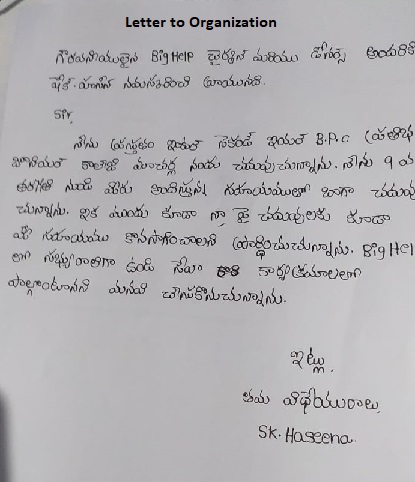 Letter to Organization
గౌరవనీయులైన Big Help చైర్మన్ మరియు డోనర్స్ అందరికి
షేక్. హసీన నమస్కరించి వ్రాయునది.
Sir,
నేను ప్రస్తుతం ఇంటర్ సెకండ్ ఇయర్ B.P.C (ప్రతిభ
జూనియర్ కాలేజి మాచర్ల నందు చదువుచున్నాను. నేను 9 వ
తరగతి నుండి మీరు అందిస్తున్న సహాయముతో బాగా చదువు
చున్నాను. ఇక ముందు కూడా నా పై చదువులకు కూడా
మీ సహాయము కొనసాగించాలని ప్రార్థించుచున్నాను. Big Hel
లో సభ్యురాలిగా ఉండి సేవా కార్యక్రమాలలో
పాల్గొంటానని మనవి చేసుకొనుచున్నాను.
ఇట్లు,
తమ విధేయురాలు,
SK. Haseena